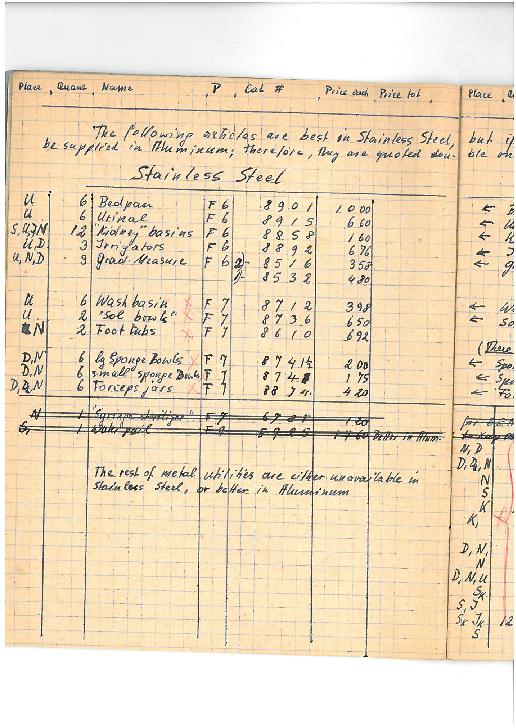 Place Quant Name P Cat # Price each Price tot.
The following articles are best in Stainless Steel,
be supplied in Aluminum; therefore, they are quoted dou-
Stainless Steel
U 6 Bedpan F 6 8901 10 00
U 6 Urinal F 6 8915 6 60
12 "Kidney" basins F 6 8858 1 60
U, D 3 Irrigators F 6 8892 6 76
U, N, D 3 Grad. Measure F 6 8516 3 58
8532 4 80
U 6 Wash basin F 7 8712 3 98
U 2 "Sol bowls" F 7 8736 6 50
N 2 Foot tubs F 7 8610 6 92
D, N 6 lg Sponge Bowls F 7 874 1½ 2 00
D, N 6 small sponge Bowls F 7 874 1 75
N 6 Forceps jars F 7 887 4 20
N 1 F 7
1 Water pail better in Alum.
The rest of metal utilities are either unavailable in
Stainless Steel, or better in Aluminum
Place
but if
ble on
(There
N, D
N
S
K
K,
D, N,
N
D, N, U
Sk
S, J
Sk Jk 12
S